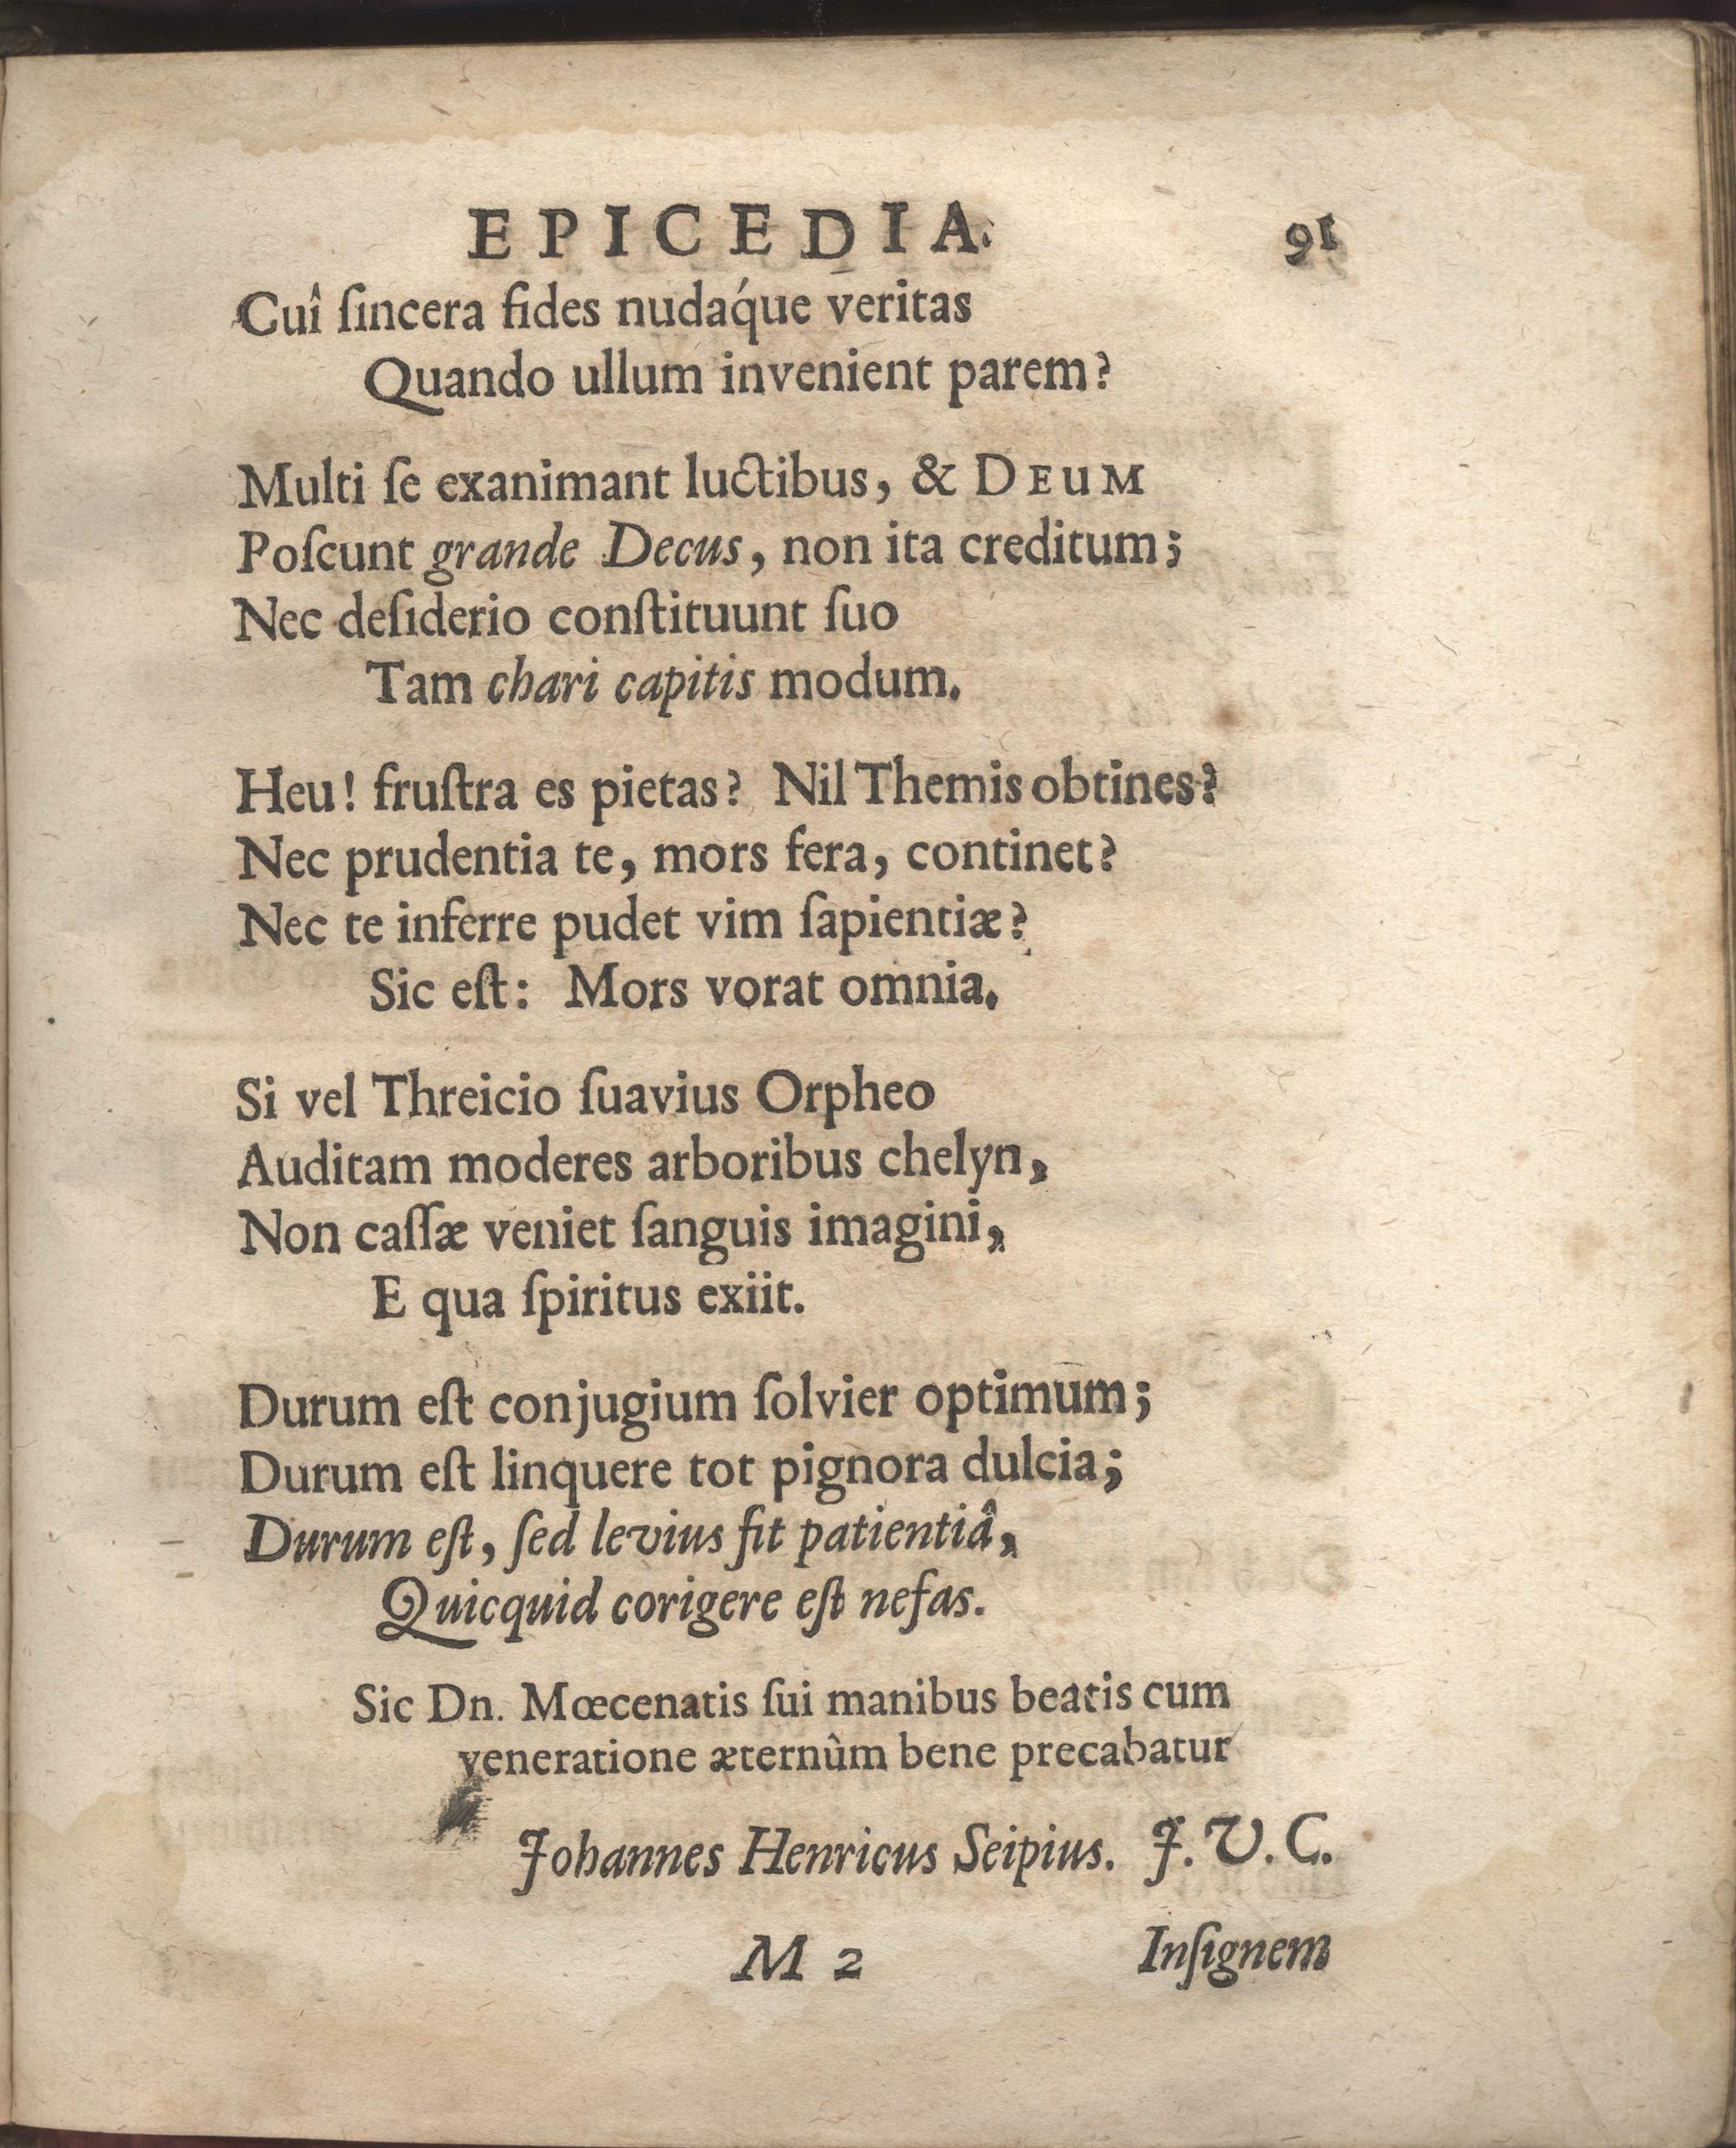 EPICEDIA. 91
Cuî ſincera fides nudaq́ue veritas
Quando ullum invenient parem?
Multi ſe exanimant luctibus, & DEUM
Poſcunt grande Decus, non ita creditum;
Nec deſiderio conſtituunt ſuo
Tam chari capitis modum.
Heu! fruſtra es pietas? Nil Themis obtines?
Nec prudentia te, mors fera, continet?
Nec te inferre pudet vim ſapientiæ?
Sic eſt: Mors vorat omnia.
Si vel Threicio ſuavius Orpheo
Auditam moderes arboribus chelyn,
Non caſſæ veniet ſanguis imagini,
E qua ſpiritus exiit.
Durum eſt conjugium ſolvier optimum;
Durum eſt linquere tot pignora dulcia;
Durum eſt, ſed levius fit patientiâ,
Quicquid corigere eſt nefas.
Sic Dn. Mœcenatis ſui manibus beatis cum
veneratione æternûm bene precabatur
Johannes Henricus Seipius. J. V. C.
M 2 Inſignem